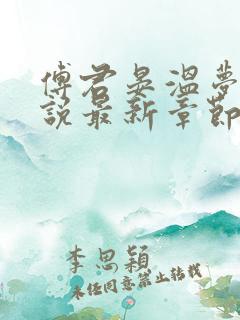 傅君晏温梦
说最新章节
李思颖
未经同意禁止转载